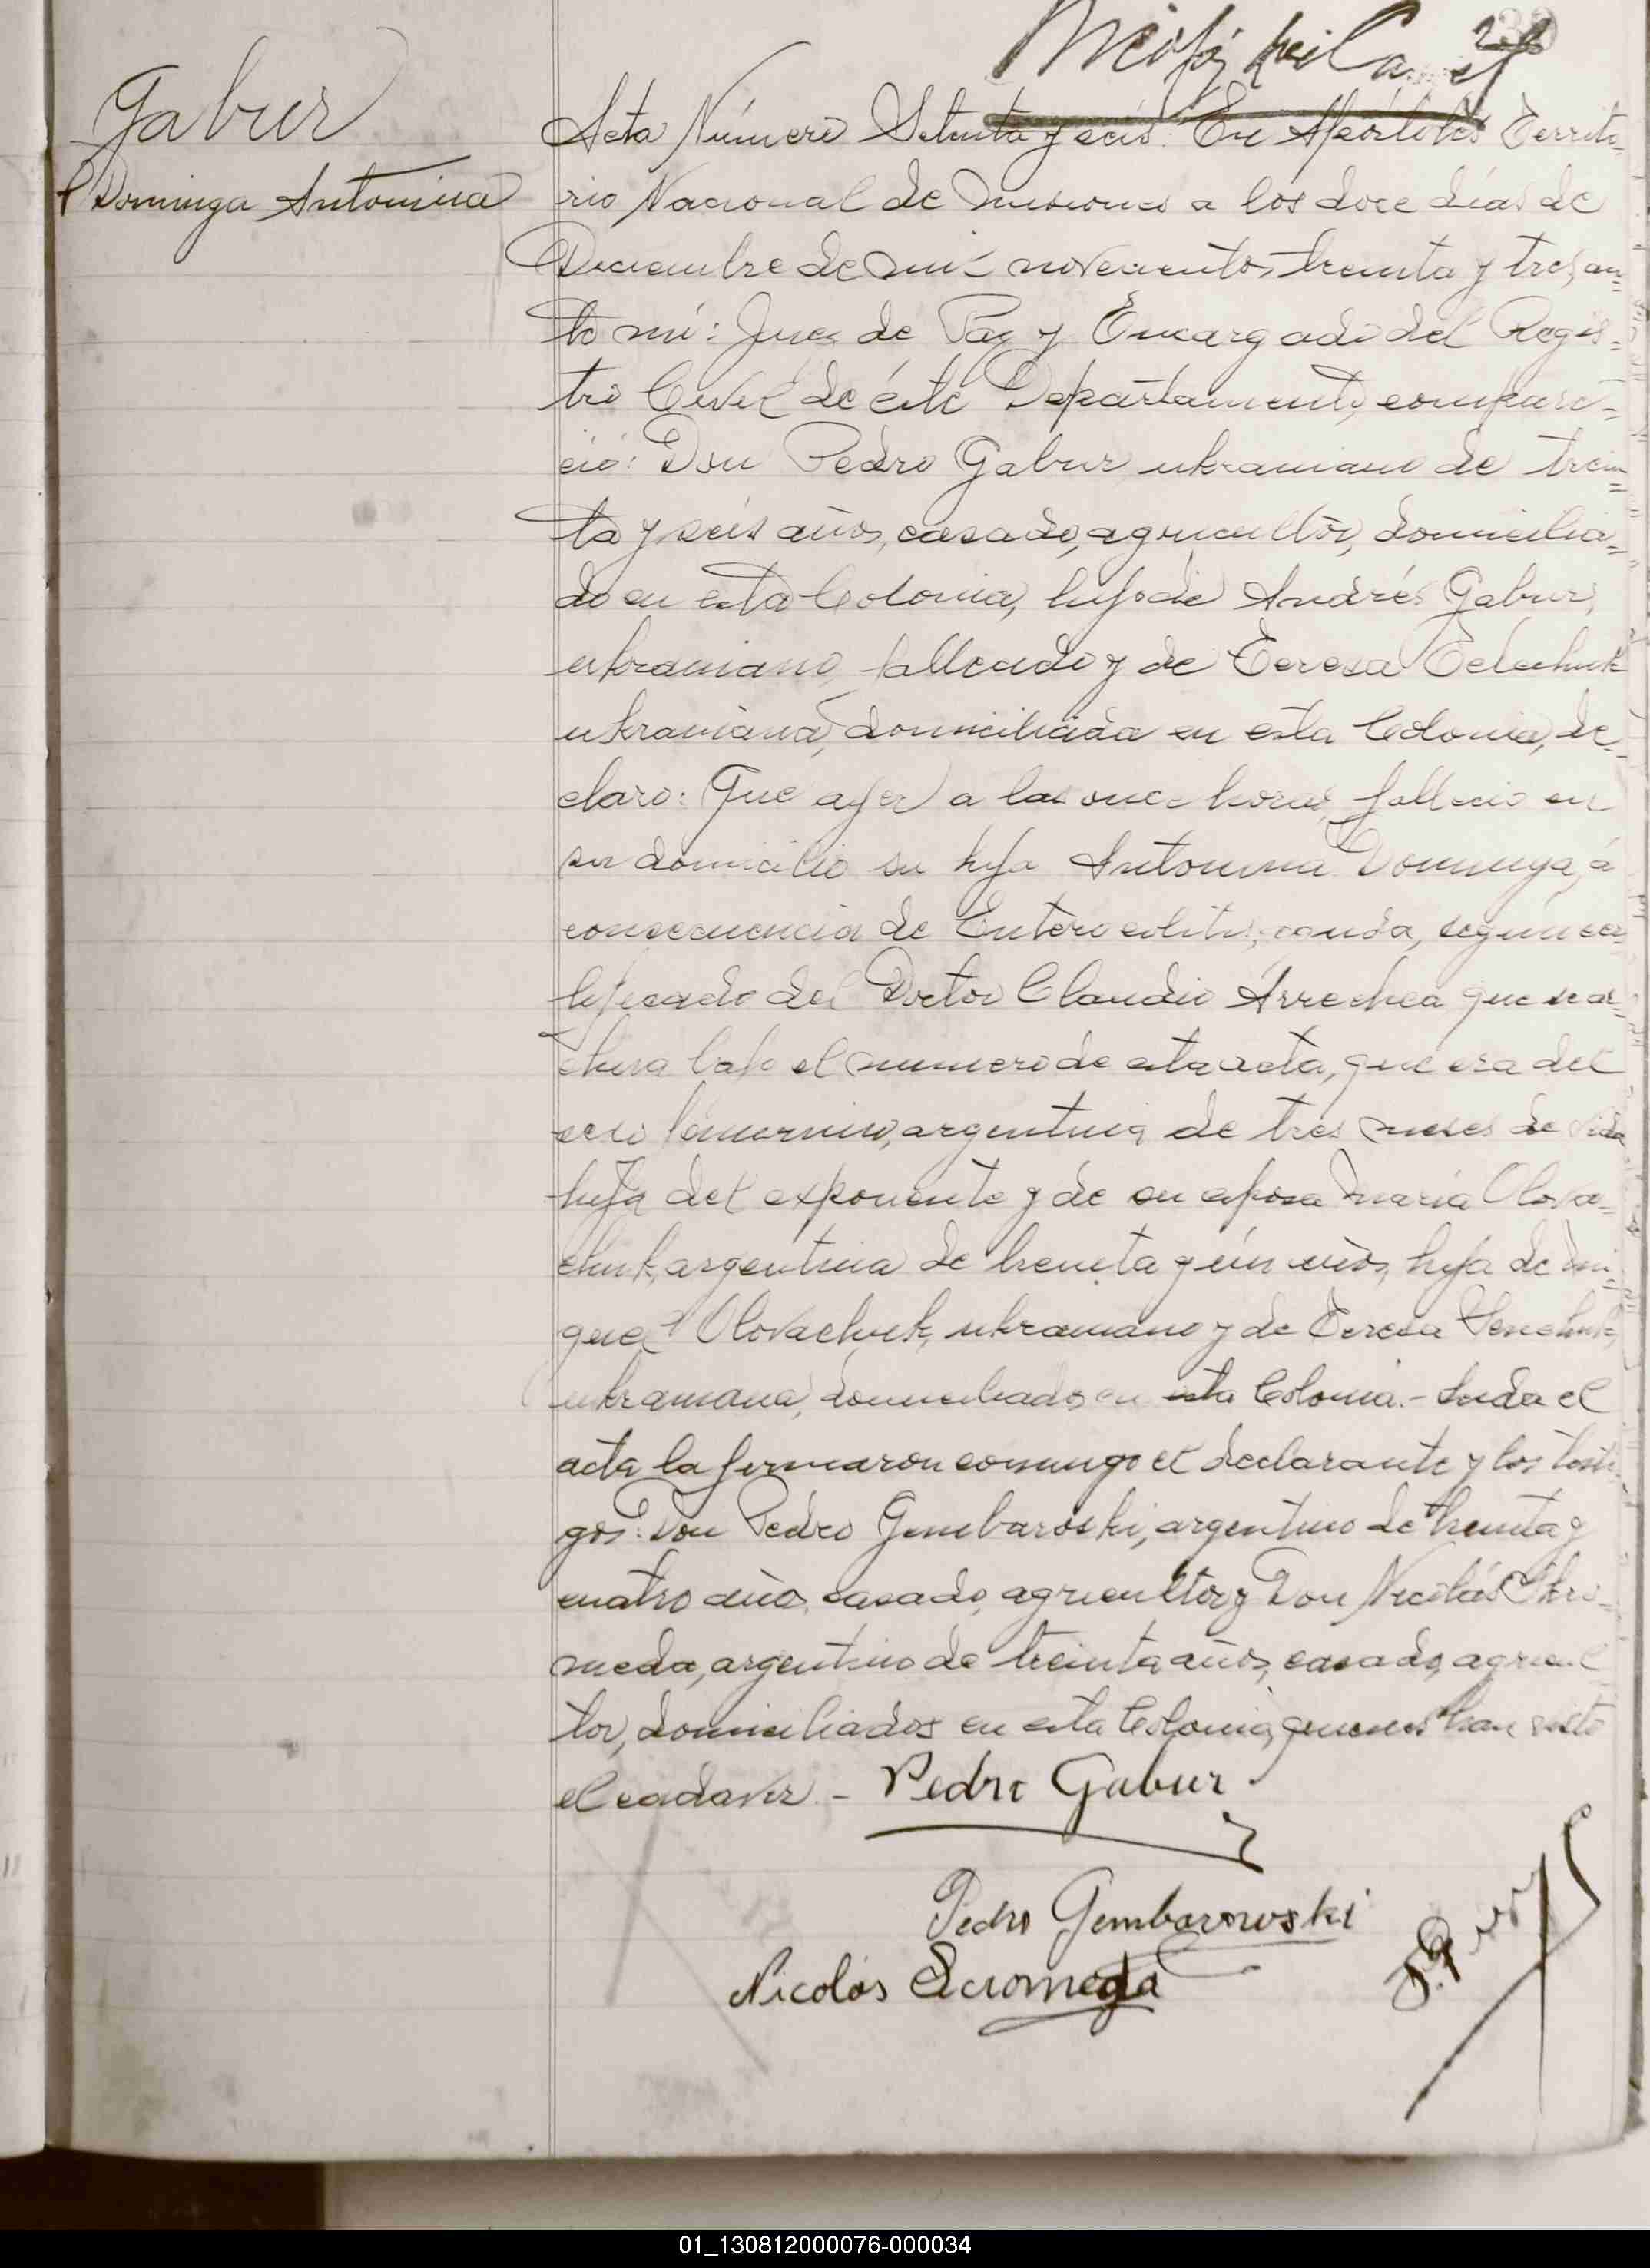 Gabur
Dominga Antonina
Acta Número Setenta y seis. En Apóstoles Territo-
rio Nacional de Misiones a los doce días de
Diciembre de mil novecientos treinta y tres, an-
te mí: Juez de Paz y Encargado del Regis-
tro Civil de éste Departamento, compare-
ció: Don Pedro Gabur ukraniano de trein-
ta y seis años, casado, agricultor, domicilia-
do en esta Colonia, hijo de Andrés Gabur,
ukraniano, fallecido y de Teresa
ukraniana, domiciliada en esta Colonia, de-
claro: Que ayer a las once horas, falleció en
su domicilio su hija Antonina Dominga, a
consecuencia de Entero colitis, aguda, según cer-
tificado del Doctor Claudio Arrechea que se ar-
chiva bajo el numero de esta acta, que era del
sexo femenino, argentina de tres meses de vida
hija del exponente y de su esposa María Olova-
chuk, argentina de treinta y un años, hija de Mi-
guel Olovachuk, ukraniano y de Teresa
ukraniana, domiciliados en esta Colonia.- Leida el
acta la firmaron conmigo el declarante y los testi-
gos: Don Pedro Gembaroski, argentino de treinta y
cuatro años, casado, agricultor y Don Nicolás Skro-
meda, argentino de treinta años, casado, agricul-
tor, domiciliados en esta Colonia, quienes han visto
el cadaver.- Pedro Gabur
Pedro Gembarowski
Nicolás Scromeda
01_130812000076-000034